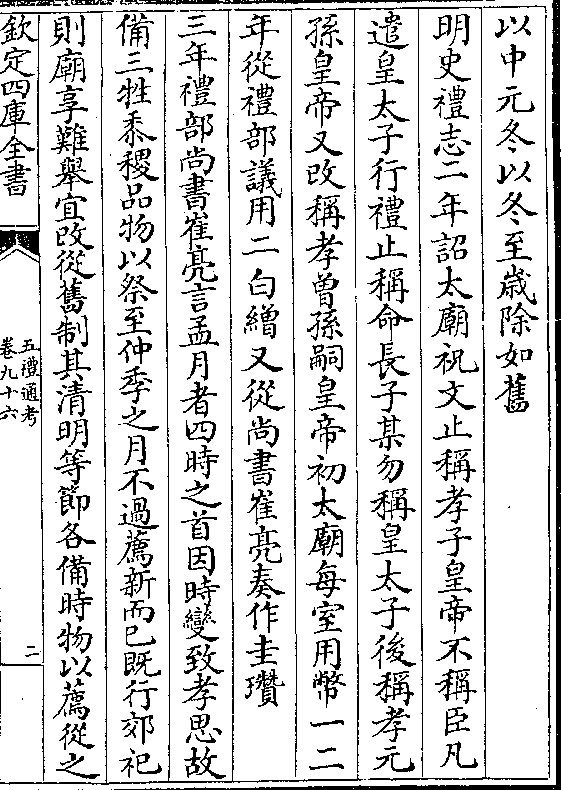 以中元冬以冬至歳除如舊
明史禮志二年詔太廟祝文止稱孝子皇帝不稱臣凡
遣皇太子行禮止稱命長子某勿稱皇太子後稱孝元
孫皇帝又改稱孝曾孫嗣皇帝初太廟每室用幣一二
年從禮部議用二白繒又從尚書崔亮奏作圭瓚
三年禮部尚書崔亮言孟月者四時之首因時變致孝思故
備三牲黍稷品物以祭至仲季之月不過薦新而已既行郊祀
則廟享難舉宜改從舊制其清明等節各備時物以薦從之
欽定四庫全書
五禮通考
卷九十六
二